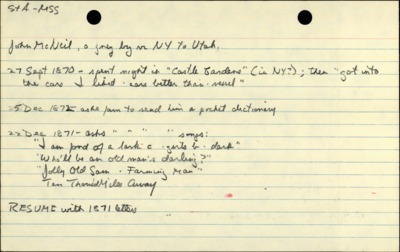 StA-MSS
John McNeil, a journey by NY to Utah.
27 Sept 1870 - spent night in "Castle Gardens" (in NY?); then "got into
the cars I liked cars better than vessel"
25 Dec 1872 asks him to send him a pocket dictionary
22 Dec 1871 - asks " " " " songs:
"I am fond of a lark
"Who'll be an old man's darling?"
"Jolly Old Sam. Farming Man"
Ten Thousand Miles Away
RESUME with 1871 letters